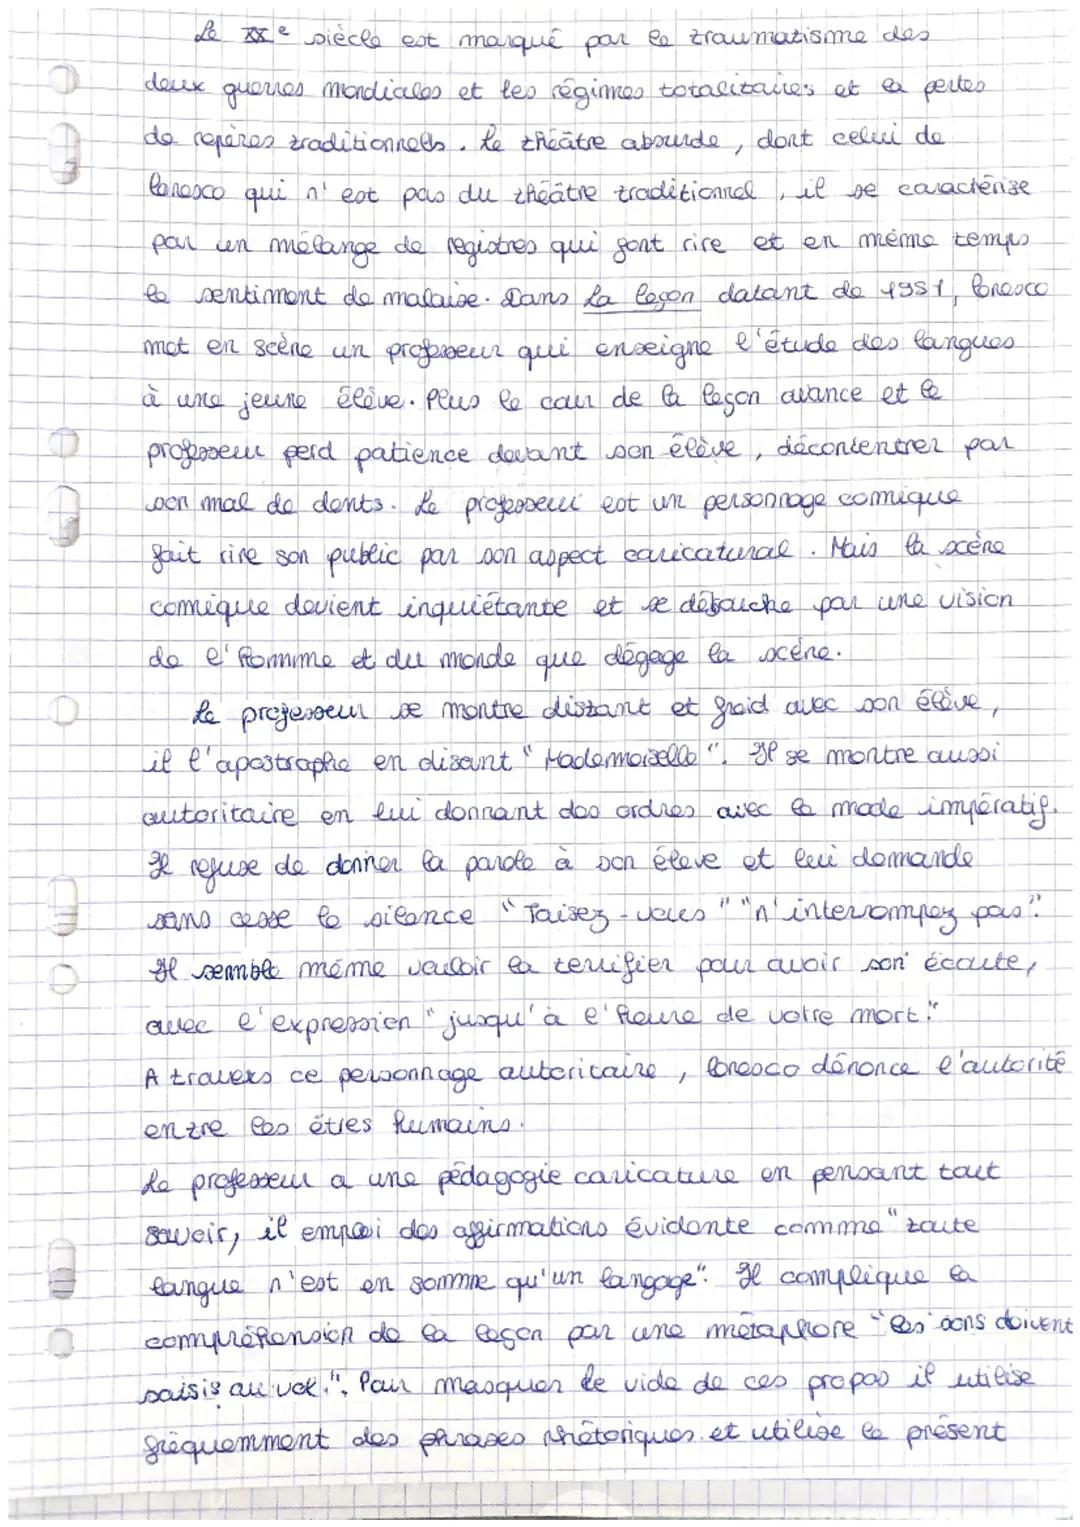 Le XXe siècle est marqué par le traumatisme des
deux guerres mondiales et les régimes totalitaires et la pertes
de repères traditionnels. Le théâtre absurde, dont celui de
Ionesco qui n'est pas du théâtre traditionnel, il se caractérise
par un mélange de registres qui font rire et en même temps
le sentiment de malaise. Dans La leçon datant de 1951, Ionesco
met en scène un professeur qui enseigne l'étude des langues
à une jeune élève. Plus le cour de la leçon avance et le
professeur perd patience devant son élève, décontentrer par
son mal de dents. Le professeur est un personnage comique
fait rire son public par son aspect caricatural. Mais la scène
comique devient inquiétante et se débouche par une vision
de l'homme et du monde que dégage la scène.
Le professeur se montre distant et froid avec son élève,
il l'apostrophe en disant "Mademoiselle". Il se montre aussi
autoritaire en lui donnant des ordres avec le mode impératif.
Il refuse de donner la parole à son éleve et lui demande
sans cesse le silence "Taisez-vous" "n'interrompez pas".
Il semble même vouloir la terrifier pour avoir son écoute,
avec l'expression "jusqu'à l'heure de votre mort."
A travers ce personnage autoritaire, Ionesco dénonce l'autorité
entre les êtres humains.
Le professeur a une pédagogie caricature en pensant tout
savoir, il emploi des affirmations évidente comme "toute
langue n'est en somme qu'un langage". Il complique la
compréhension de la leçon par une métaphore "les sons doivent
saisis au vol.". Pour masquer le vide de ces propos il utilise
fréquemment des phrases rhétoriques et utilise le présent